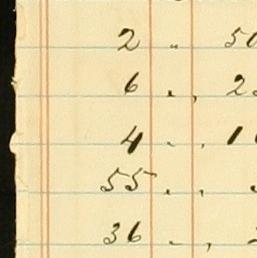 2 " 50
6 " , 2
4 " , 1
55 " ,
36 " ,